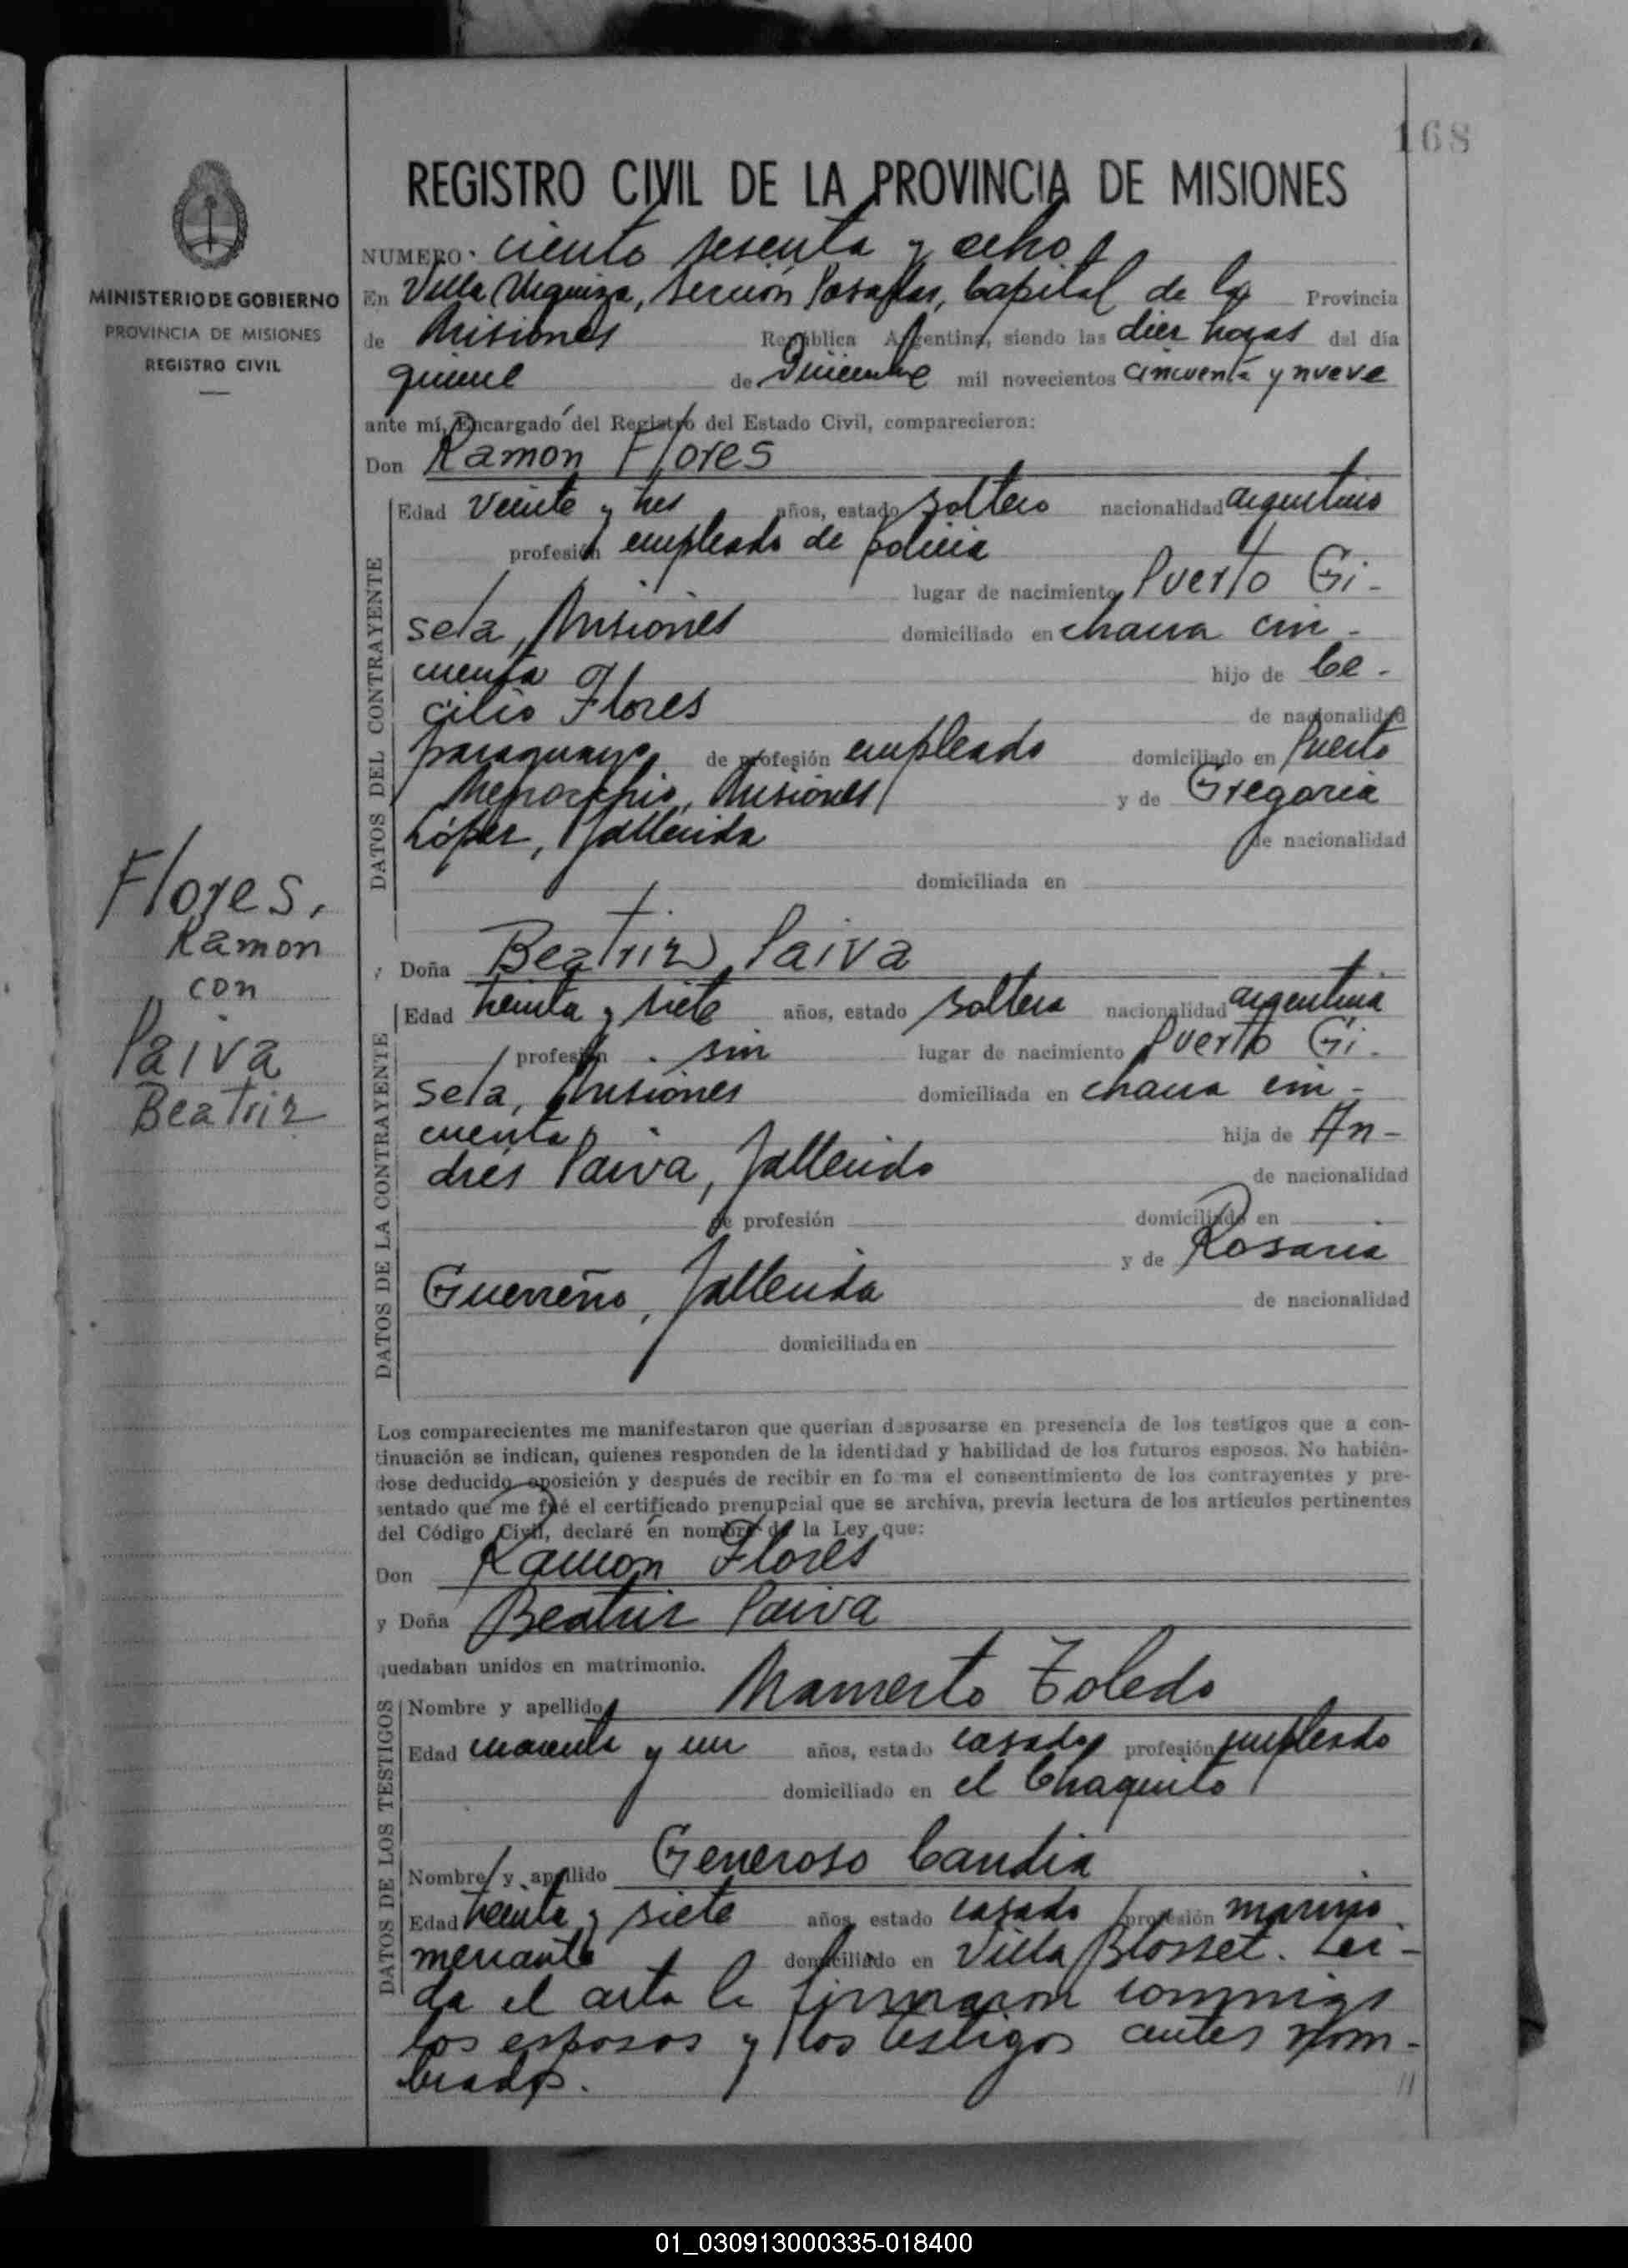 168
REGISTRO CIVIL DE LA PROVINCIA DE MISIONES
MINISTERIO DE GOBIERNO
PROVINCIA DE MISIONES
REGISTRO CIVIL
NUMERO. ciento sesenta y ocho
En Villa Urquiza, Sección Posadas, Capital de la Provincia
de Misiones República Argentina, siendo las diez horas del día
quince de Diciembre mil novecientos cincuenta y nueve
ante mí, Encargado del Registro del Estado Civil, comparecieron:
Don Ramon Flores
DATOS DEL CONTRAYENTE
Edad veinte y tres años, estado soltero nacionalidad argentino
profesión empleado de policia
lugar de nacimiento Puerto Gi-
sela, Misiones domiciliado en chacra cin-
cuenta hijo de Ce-
cilio Flores de nacionalidad
paraguayo de profesión empleado domiciliado en Puerto
Menocchio, Misiones y de Gregoria
López, fallecida de nacionalidad
domiciliada en
Flores,
Ramon
con
Paiva
Beatriz
y Doña Beatriz Paiva
DATOS DE LA CONTRAYENTE
Edad treinta y siete años, estado soltera nacionalidad argentina
profesión . sin lugar de nacimiento Puerto Gi-
sela, Misiones domiciliada en chacra cin-
cuenta hija de An-
drés Paiva, fallecido de nacionalidad
de profesión domiciliado en
y de Rosaria
Guerreño, fallecida de nacionalidad
domiciliada en
Los comparecientes me manifestaron que querían desposarse en presencia de los testigos que a con-
tinuación se indican, quienes responden de la identidad y habilidad de los futuros esposos. No habién-
dose deducido oposición y después de recibir en forma el consentimiento de los contrayentes y pre-
sentado que me fué el certificado prenupcial que se archiva, previa lectura de los artículos pertinentes
del Código Civil, declaré en nombre de la Ley que:
Don Ramon Flores
y Doña Beatriz Paiva
quedaban unidos en matrimonio.
DATOS DE LOS TESTIGOS
Nombre y apellido Mamerto Toledo
Edad cuarenta y un años, estado casado profesión empleado
domiciliado en el Chaquito
Nombre y apellido Generoso Candia
Edad treinta y siete años, estado casado profesión marino
mercante domiciliado en Villa Blosset. Lei-
da el acta la firmaron conmigo
los esposos y los testigos antes nom-
brados.
//
01_030913000335-018400